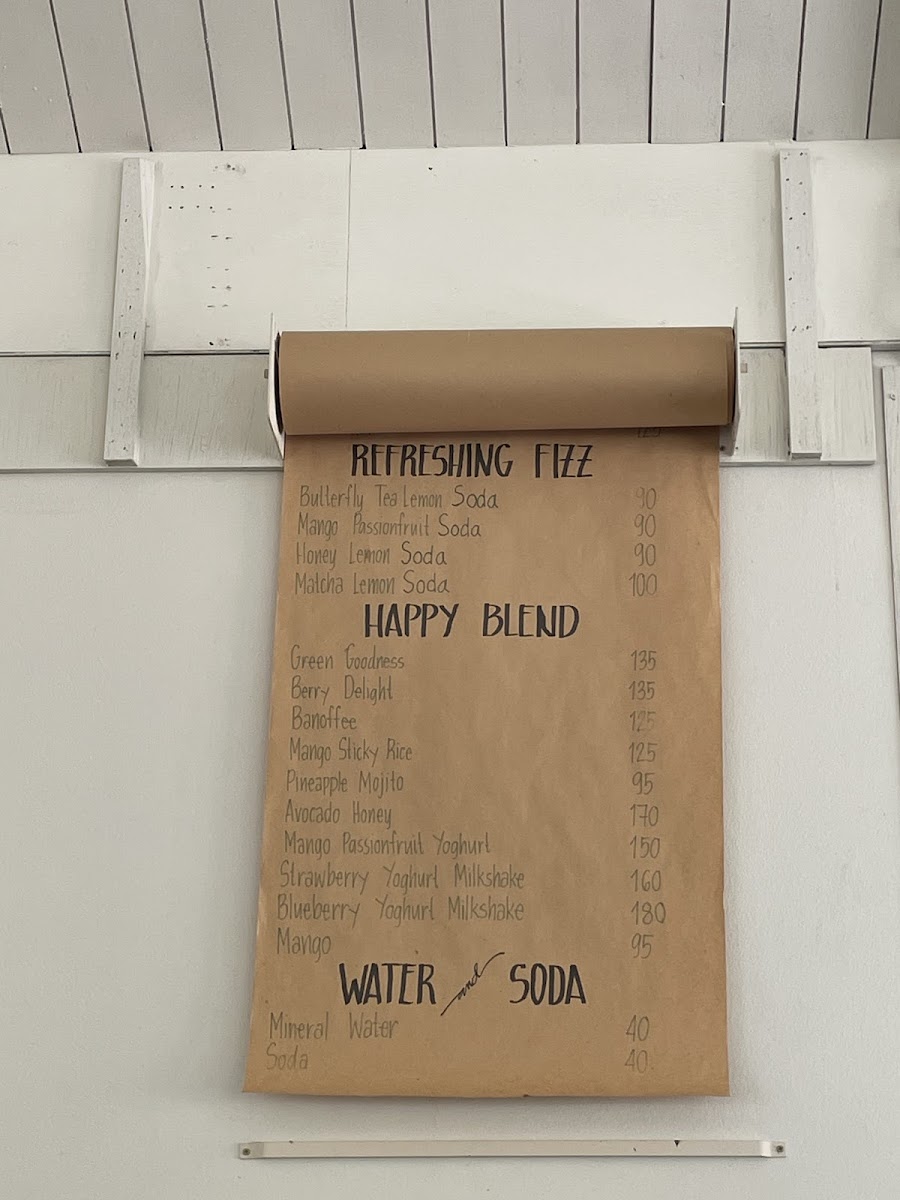 REFRESHING FIZZ
Butterfly Tea Lemon Soda 90
Mango Passionfruit Soda 90
Honey Lemon Soda 90
Matcha Lemon Soda 100
HAPPY BLEND
Green Goodness 135
Berry Delight 135
Banoffee 125
Mango Sticky Rice 125
Pineapple Mojito 95
Avocado Honey 170
Mango Passionfruit Yoghurt 150
Strawberry Yoghurt Milkshake 160
Blueberry Yoghurt Milkshake 180
Mango 95
WATER and SODA
Mineral Water 40
Soda 40